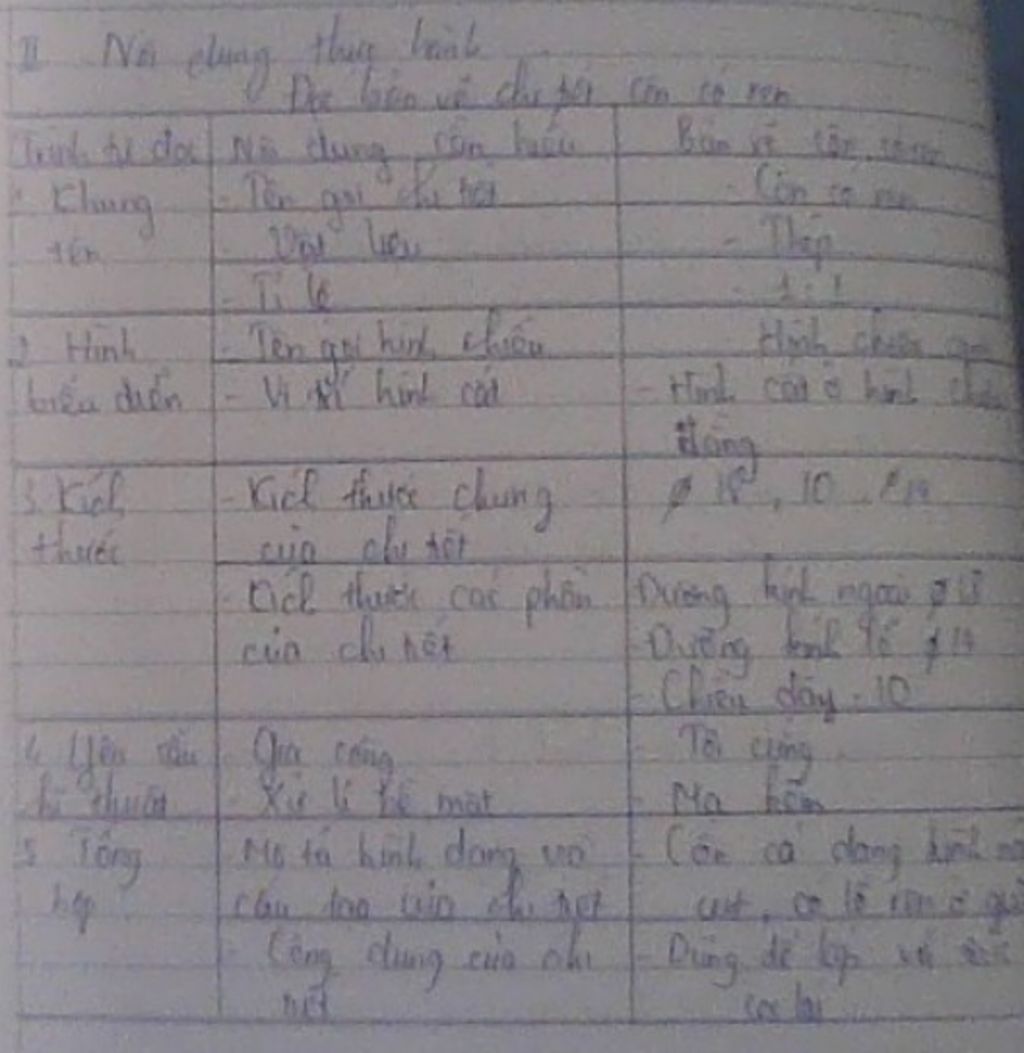 II Nội dung thực hành
Đọc bản vẽ chi tiết côn có ren
Trình tự đọc Nội dung cần hiểu Bản vẽ côn có ren
1. Khung - Tên gọi chi tiết - Côn có ren
tên - Vật liệu - Thép
- Tỉ lệ - 1:1
2. Hình - Tên gọi hình chiếu Hình chiếu
biểu diễn - Vị trí hình cắt - Hình cắt ở hình chiếu
đứng
3. Kích - Kích thước chung ø 18, 10, ø 14
thước của chi tiết
- Kích thước các phần Đường kính ngoài ø 18
của chi tiết - Đường kính lỗ ø 14
- Chiều dày 10
4. Yêu cầu - Gia công - Tôi cứng
kĩ thuật - Xử lí bề mặt - Mạ kẽm
5. Tổng - Mô tả hình dạng và - Côn có dạng hình nón
hợp cấu tạo của chi tiết cụt, có lỗ ren ở
- Công dụng của chi - Dùng để
tiết